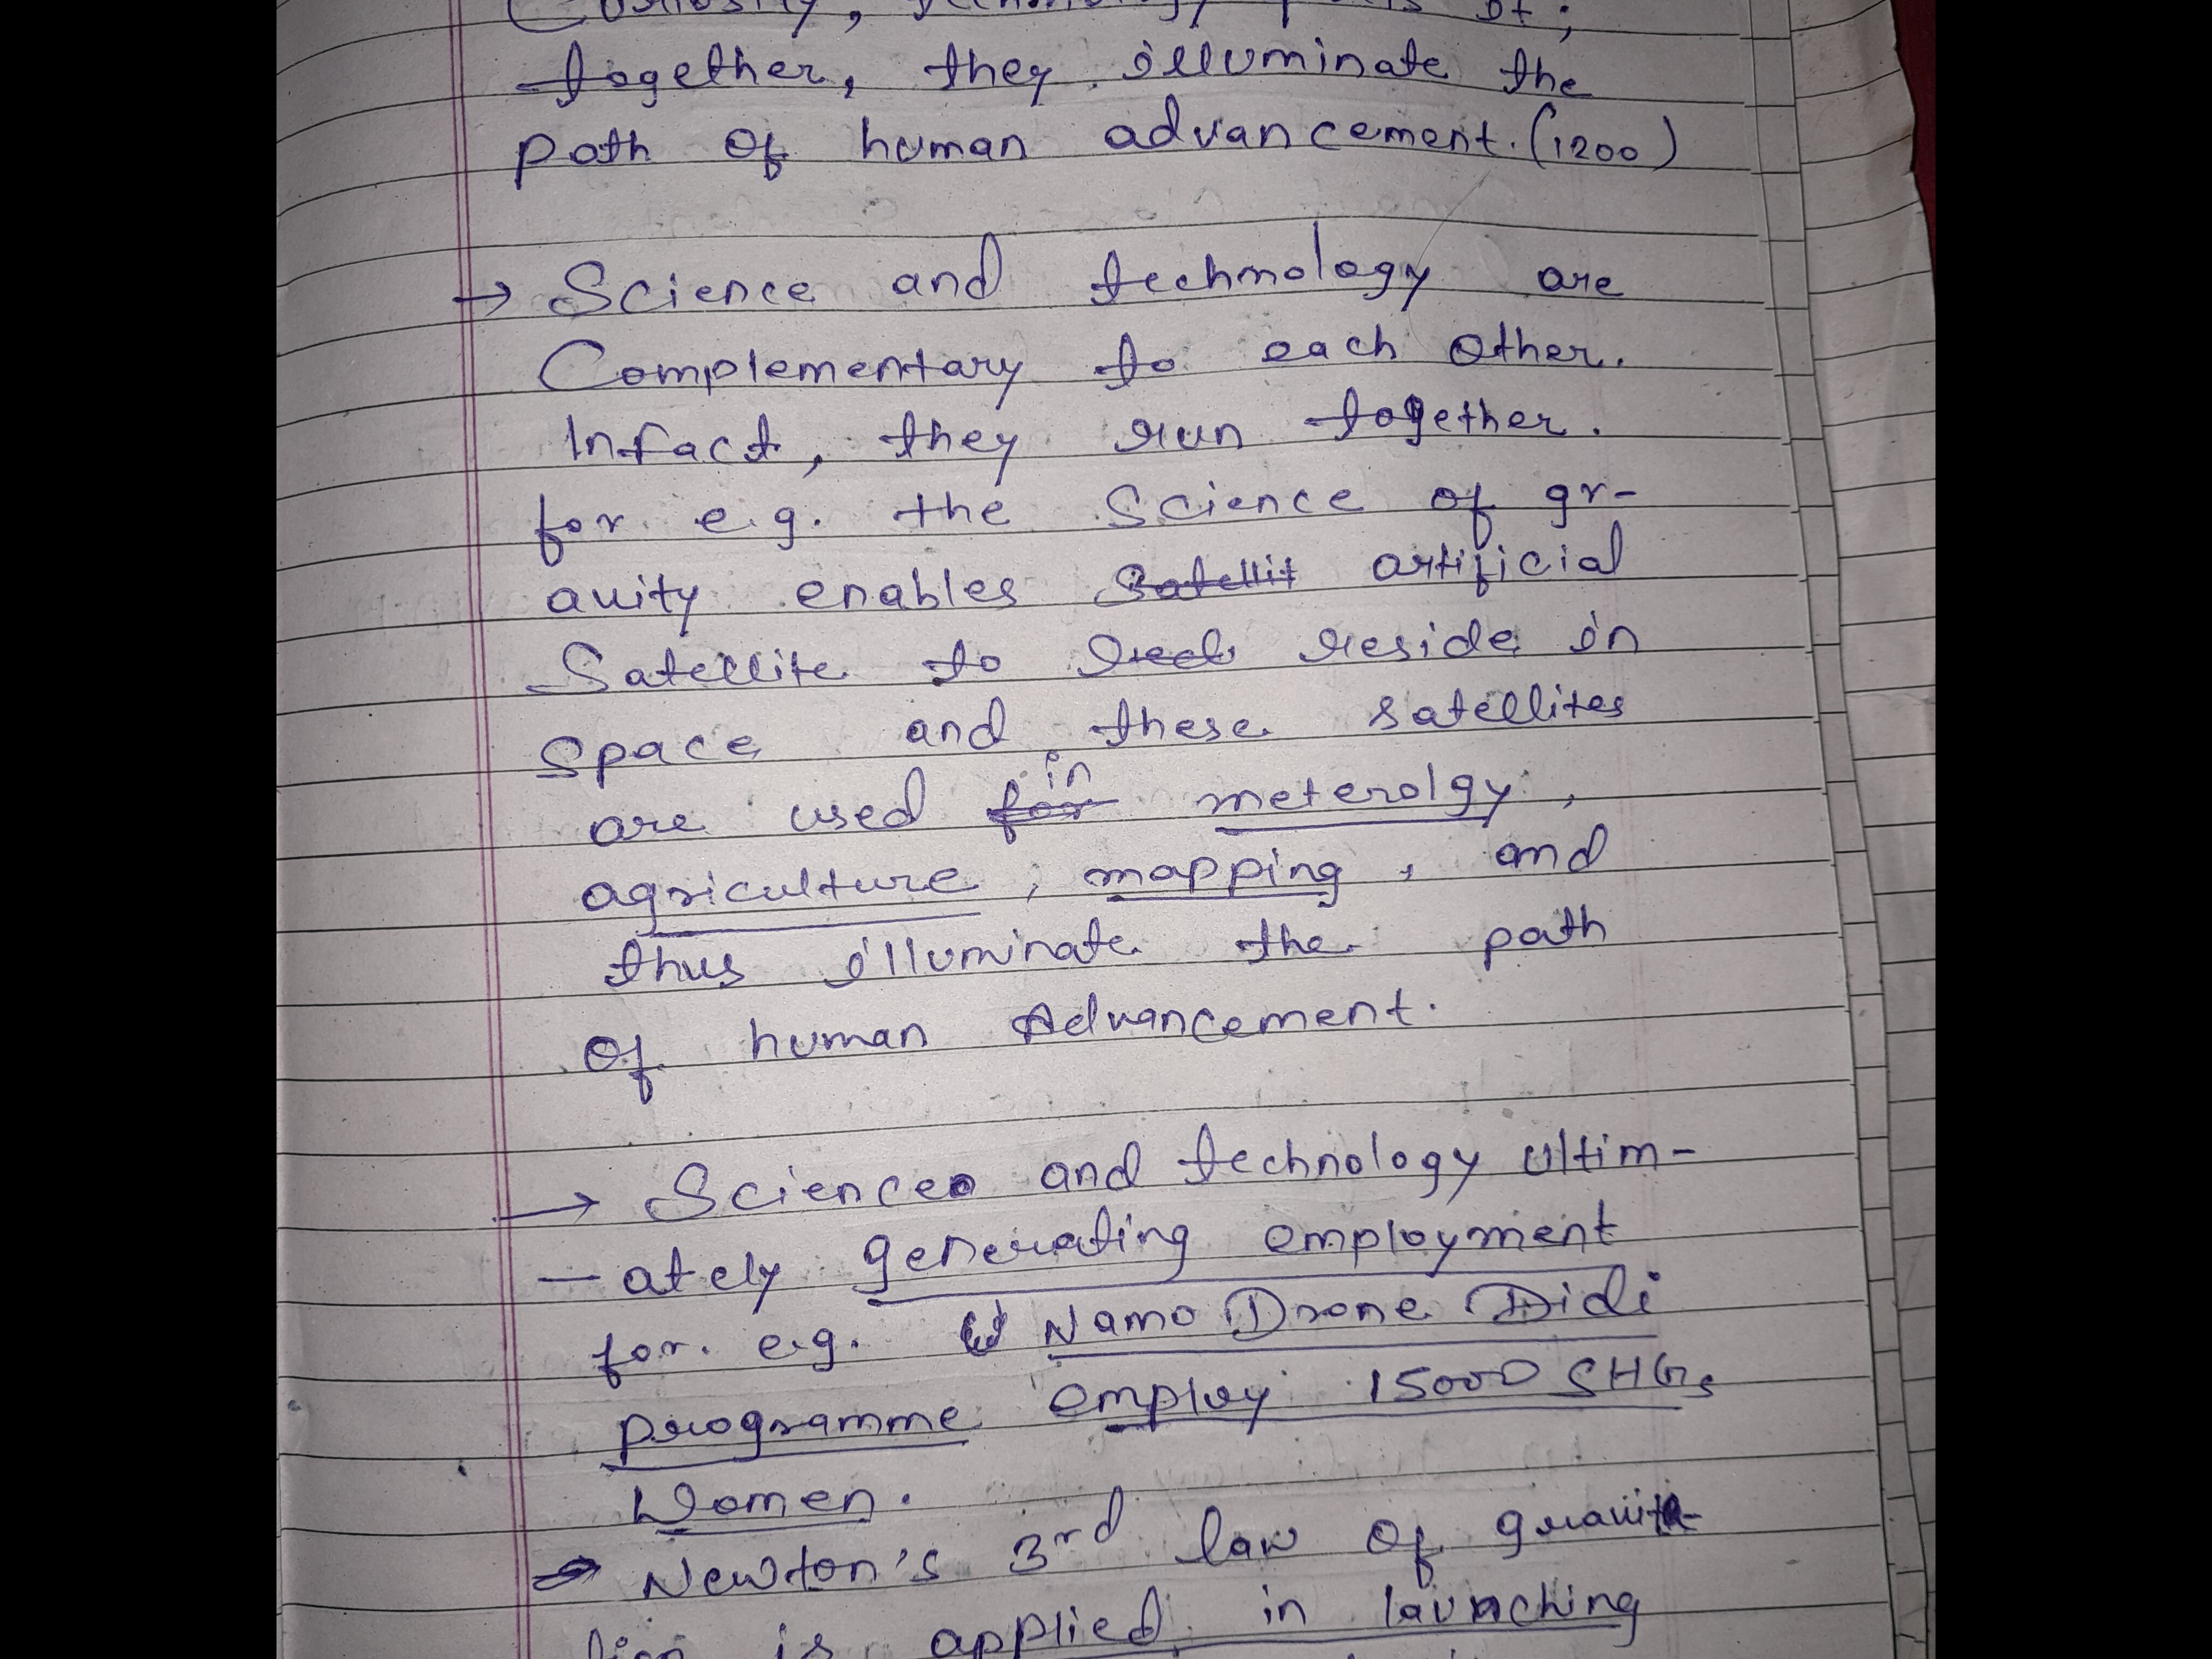 Curiosity, technology of it;
together, they illuminate the
path of human advancement. (1200)
→ Science and technology are
Complementary to each other.
Infact, they run together.
for e.g. the Science of gr-
avity enables Satellit artificial
Satellite to reside in
space and these satellites
are used for in meterolgy,
agriculture, mapping, and
thus illuminate the path
of human Advancement.
→ Science and technology ultim-
-ately generating employment
for e.g. Namo Drone Didi
programme employ 15000 SHGs
Women.
→ Newton's 3rd law of gravita-
tion is applied in launching